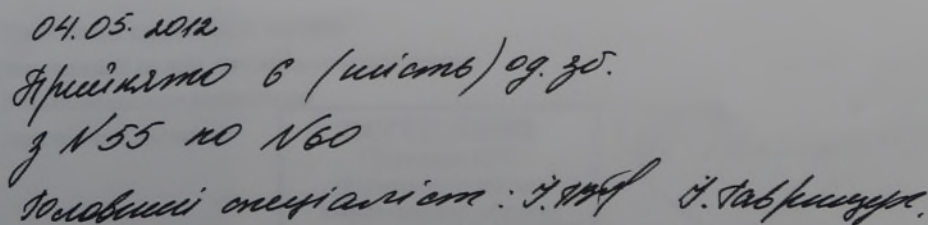 04.05.2012
Прийнято 6 (шість) од. зб.
з N55 по N60
Головний спеціаліст: